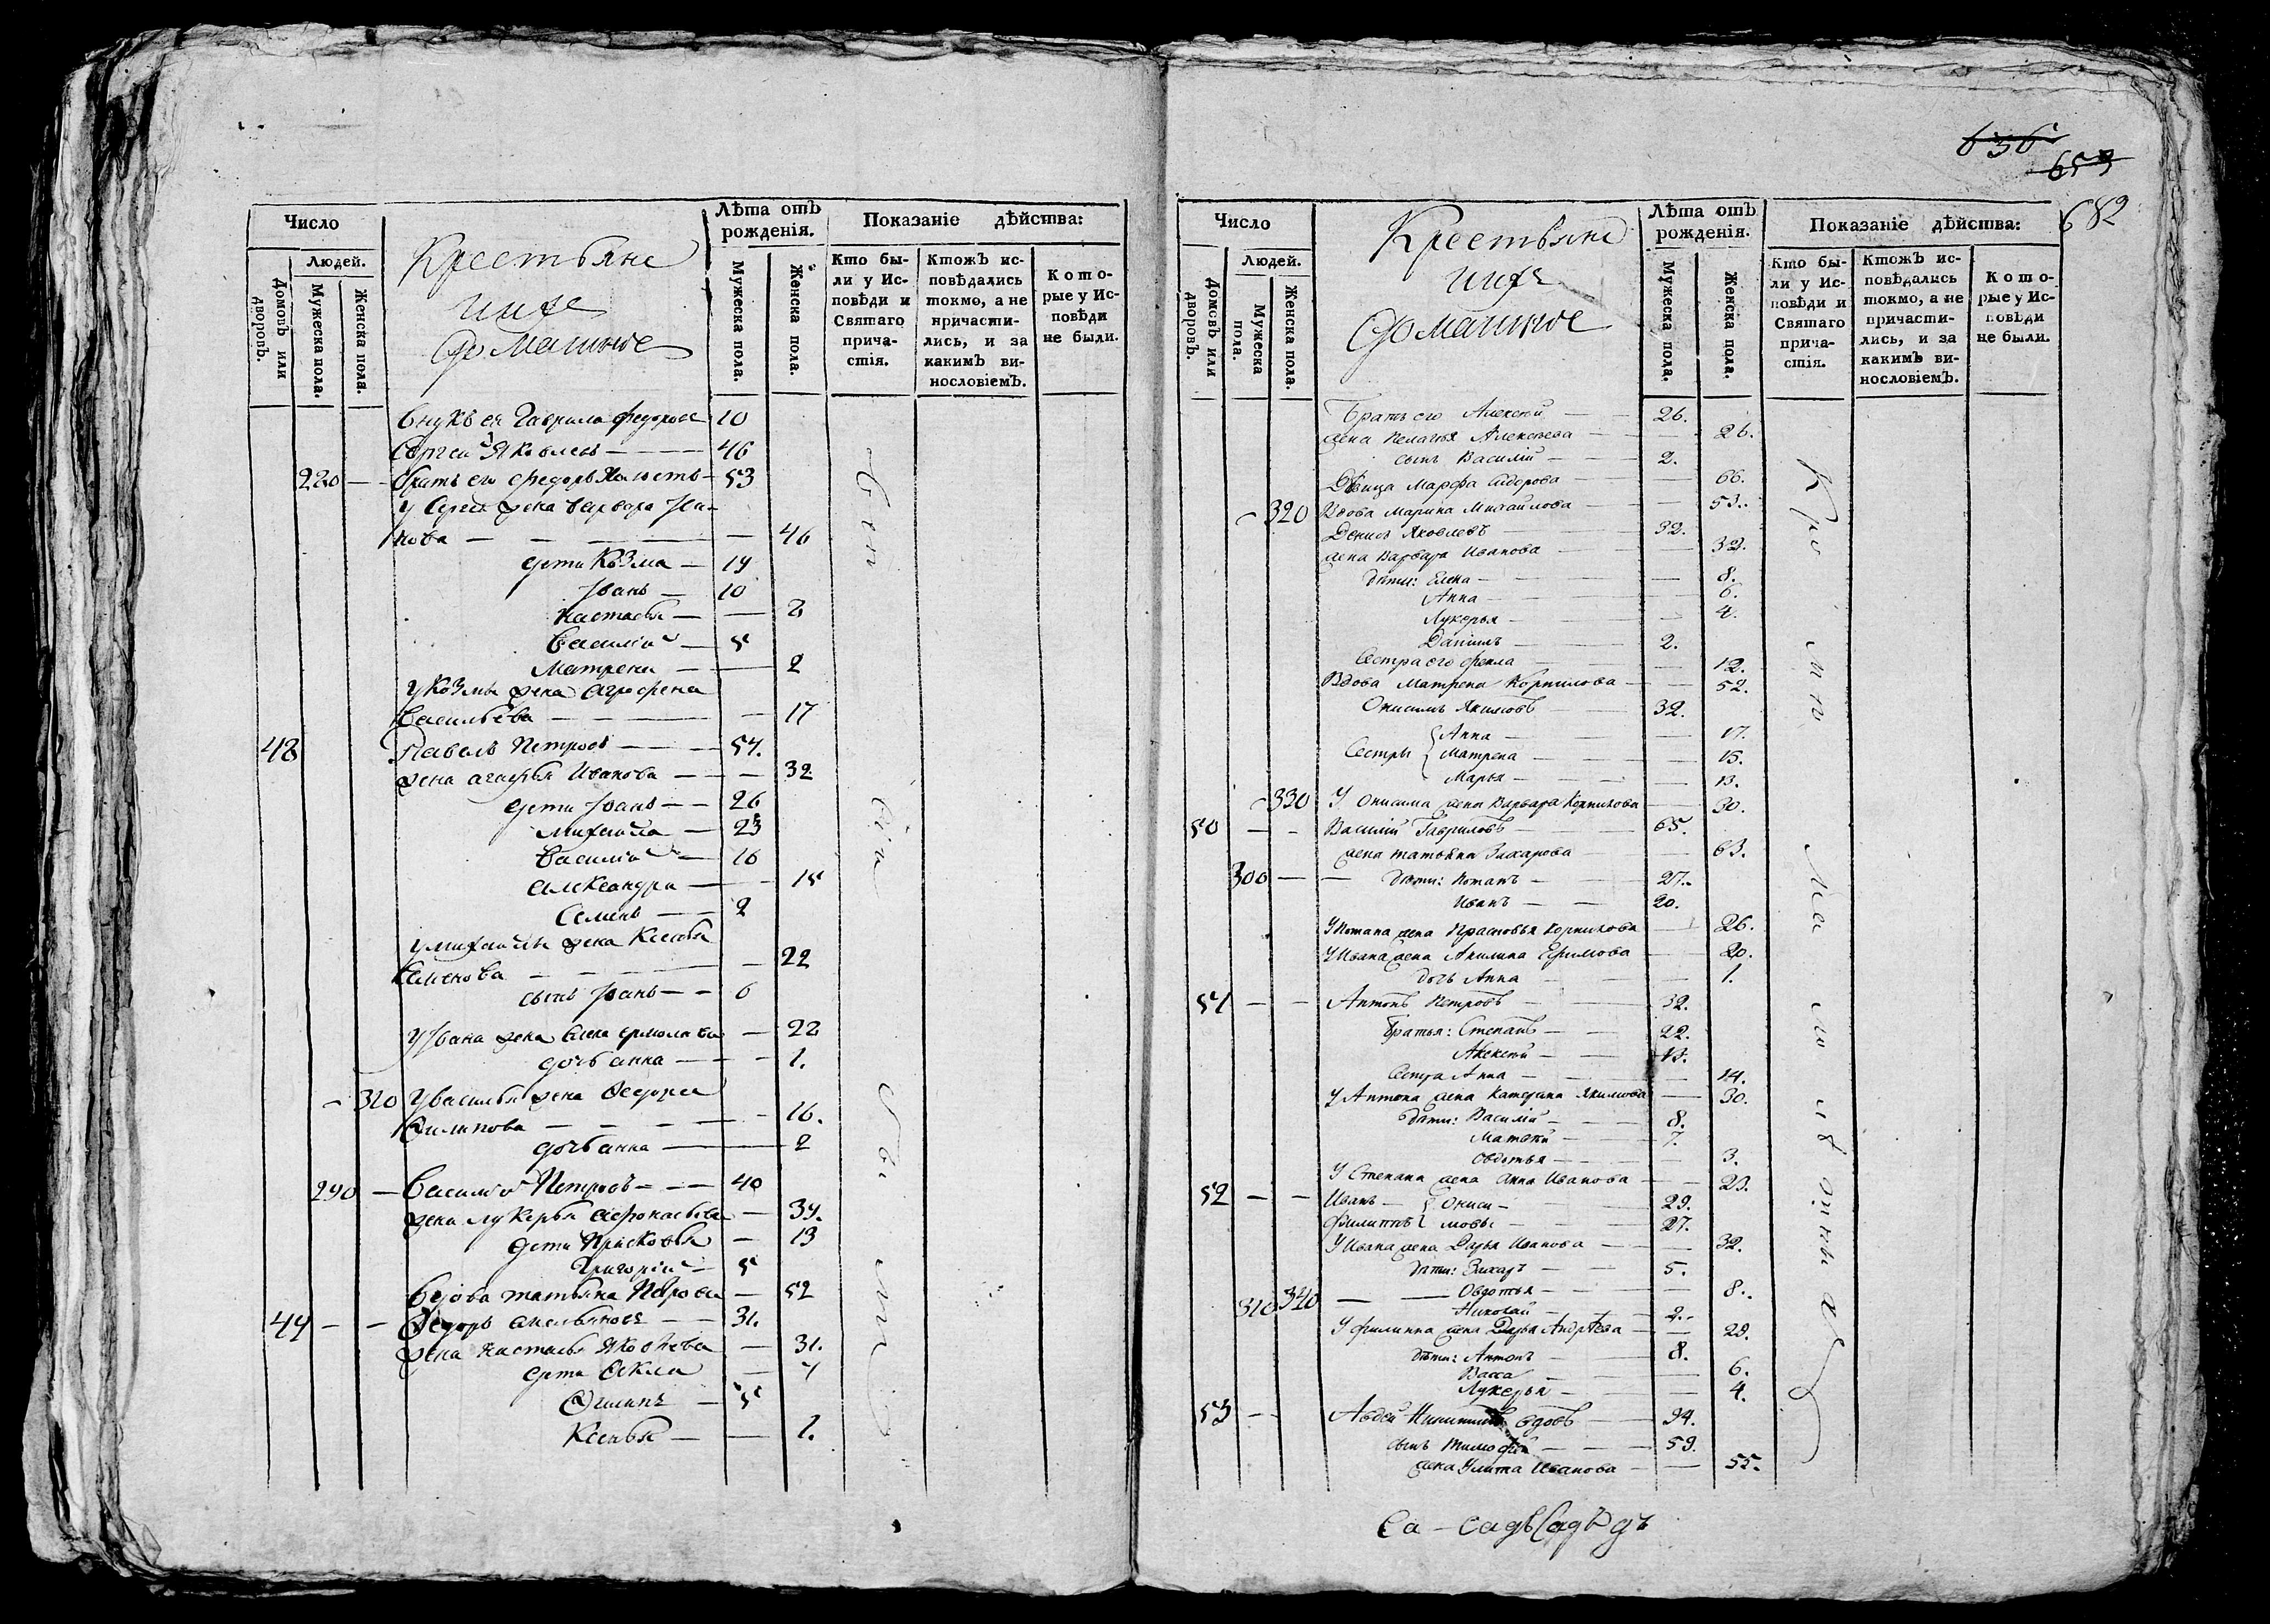 Число
Людей.
Домовъ или дворовъ.
Мужеска пола.
Женска пола.
Крестьяне
ихъ
Домашние
Лѣта отъ рожденія.
Мужеска пола.
Женска пола.
Показаніе дѣйства:
Кто были у Исповѣди и Святаго причастія.
Ктожъ исповѣдались токмо, а не причастились, и за какимъ винословіемъ.
Которые у Исповѣди не были.
Внукъ ея Гаврила Федоровъ 10
Сергей Яковлевъ 46
220 братъ его Федоръ Холостъ 53
У Сергея жена Варвара Ива-
нова 46
дети Козма 19
Иванъ 10
Настасья 8
Василий 5
Матрена 2
У Козмы жена Агрофена
Васильева 17
48 Павелъ Петровъ 54.
жена Агафья Иванова 32
дети Иванъ 26
Михайла 23
Василий 16
Александра 15
Семенъ 2
У Михайлы жена Ксенья
Семенова 22
сынъ Иванъ 6
У Ивана жена Анна Ермолаева 22
дочь Анна 1.
310 У Василья жена Федора
Филипова 16.
дочь Анна 2
290 Василий Петровъ 40
жена Лукерья Афонасьева 39.
дети Прасковья 13
Григорий 5
Вдова Татьяна Петрова 52
49 Федоръ Емельяновъ 31.
жена Настасья Яковлева 31.
дети Фекла 7
Осипъ 5
Ксенья 1.
636
653
682
Число
Людей.
Домовъ или дворовъ.
Мужеска пола.
Женска пола.
Крестьяне
ихъ
Домашние
Лѣта отъ рожденія.
Мужеска пола.
Женска пола.
Показаніе дѣйства:
Кто были у Исповѣди и Святаго причастія.
Ктожъ исповѣдались токмо, а не причастились, и за какимъ винословіемъ.
Которые у Исповѣди не были.
Братъ его Алексѣй 26.
жена Пелагья Алексѣева 26.
сынъ Василій 2.
Дѣвица Марфа Сидорова 66.
320 Вдова Марина Михайлова 53.
Денисъ Яковлевъ 32.
жена Варвара Иванова 32.
дѣти: Елена 8.
Анна 6.
Лукерья 4.
Данилъ 2.
Сестра его Фекла 12.
Вдова Матрена Корнилова 52.
Онисимъ Якимовъ 32.
Анна 17.
Сестры Матрена 15.
Марья 13.
330 У Онисима жена Варвара Корнилова 30.
50 Василій Гавриловъ 65.
жена Татьяна Захарова 63.
300 дѣти: Потапъ 27.
Иванъ 20.
У Потапа жена Прасковья Корнилова 26.
У Ивана жена Акилина Ефимова 20.
дочь Анна 1.
51 Антонъ Петровъ 32.
братья: Степанъ 22.
Алексѣй 13.
Сестра Анна 14.
У Антона жена Катерина Якимова 30.
дѣти: Василій 8.
Матвѣй 7.
Овдотья 3.
У Степана жена Анна Иванова 23.
52 Иванъ Ониси- 29.
Филиппъ мовы 27.
У Ивана жена Дарья Иванова 32.
дѣти: Захаръ 5.
310 340 Овдотья 8.
Николай 2.
У Филиппа жена Дарья Андрѣева 29.
дѣти: Антонъ 8.
Васса 6.
Лукерья 4.
53 Авдей Никитинъ вдовъ 94.
сынъ Тимофей 59.
жена Улита Иванова 55.